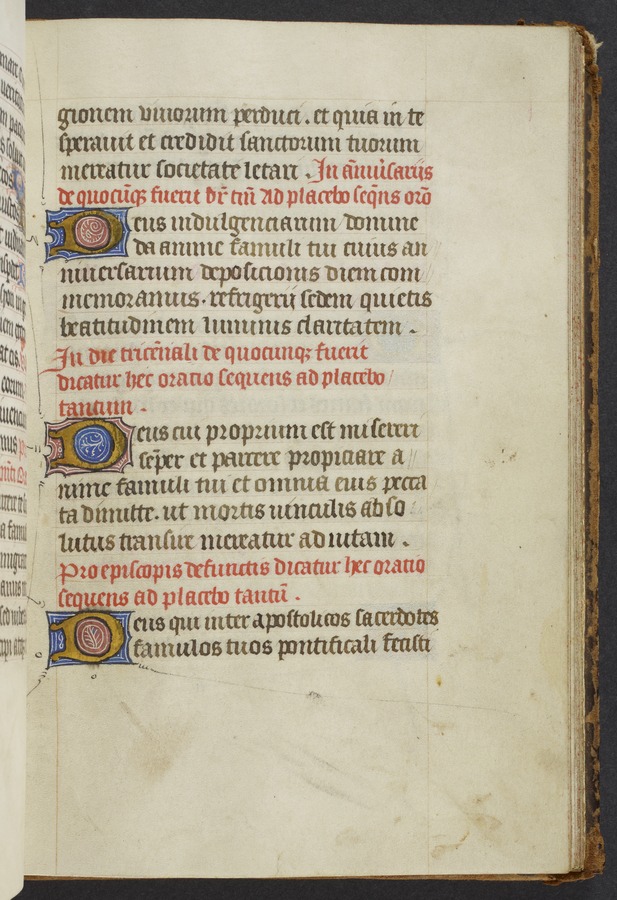 gionem viuorum perduci. et quia in te
sperauit et credidit sanctorum tuorum
mereatur societate letari. In ãniũsariis
de quocũqꝫ fuerit dr̃ tm̃ Ad placebo seq̃ns orõ
Deus indulgenciarum domine
da anime famuli tui cuius an
niuersarium deposicionis diem com
memoramus. refrigerii sedem quietis
beatitudinem luminis claritatem.
In die tricẽnali de quocunqꝫ fuerit
dicatur hec oratio sequens ad placebo
tantum.
Deus cui proprium est misereri
sẽper et parcere propiciare a
nime famuli tui et omnia eius pecca
ta dimitte. ut mortis uinculis abso
lutus transire mereatur ad uitam.
Pro episcopis defunctis dicatur hec oratio
sequens ad placebo tantũ.
Deus qui inter apostolicos sacerdotes
famulos tuos pontificali fecisti